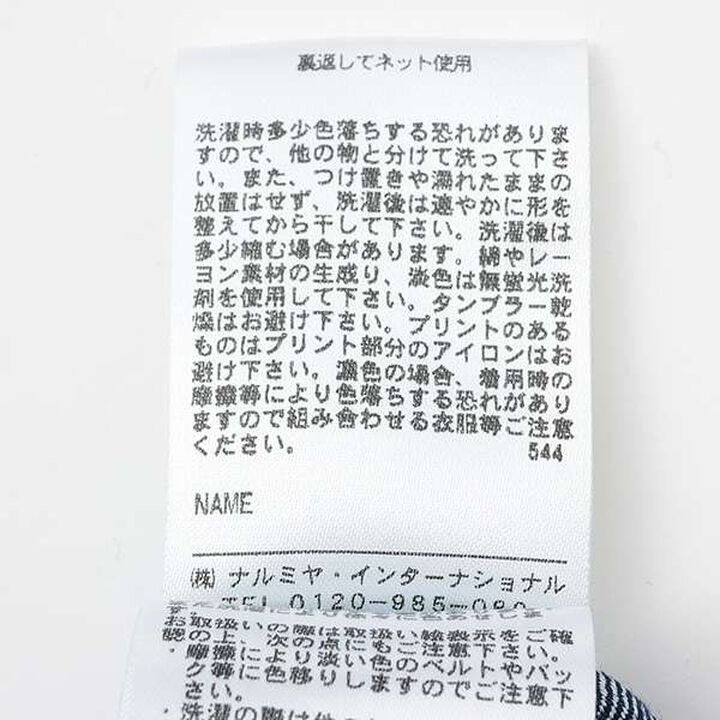 裏返してネット使用
洗濯時多少色落ちする恐れがありま
すので、他の物と分けて洗って下さ
い。また、つけ置きや濡れたままの
放置はせず、洗濯後は速やかに形を
整えてから干して下さい。洗濯後は
多少縮む場合があります。綿やレー
ヨン素材の生成り、淡色は無蛍光洗
剤を使用して下さい。タンブラー乾
燥はお避け下さい。プリントのある
ものはプリント部分のアイロンはお
避け下さい。濃色の場合、着用時の
摩擦等により色落ちする恐れがあり
ますので組み合わせる衣服等ご注意
ください。
544
NAME
(株) ナルミヤ・インターナショナル
TEL 0120-985-080
お取扱いの際は取扱い絵表示をご確
認の上、次の点にもご注意下さい。
・摩擦により淡い色のベルトやバッ
グ等に色移りしますのでご注意下
さい。
・洗濯の際は他の